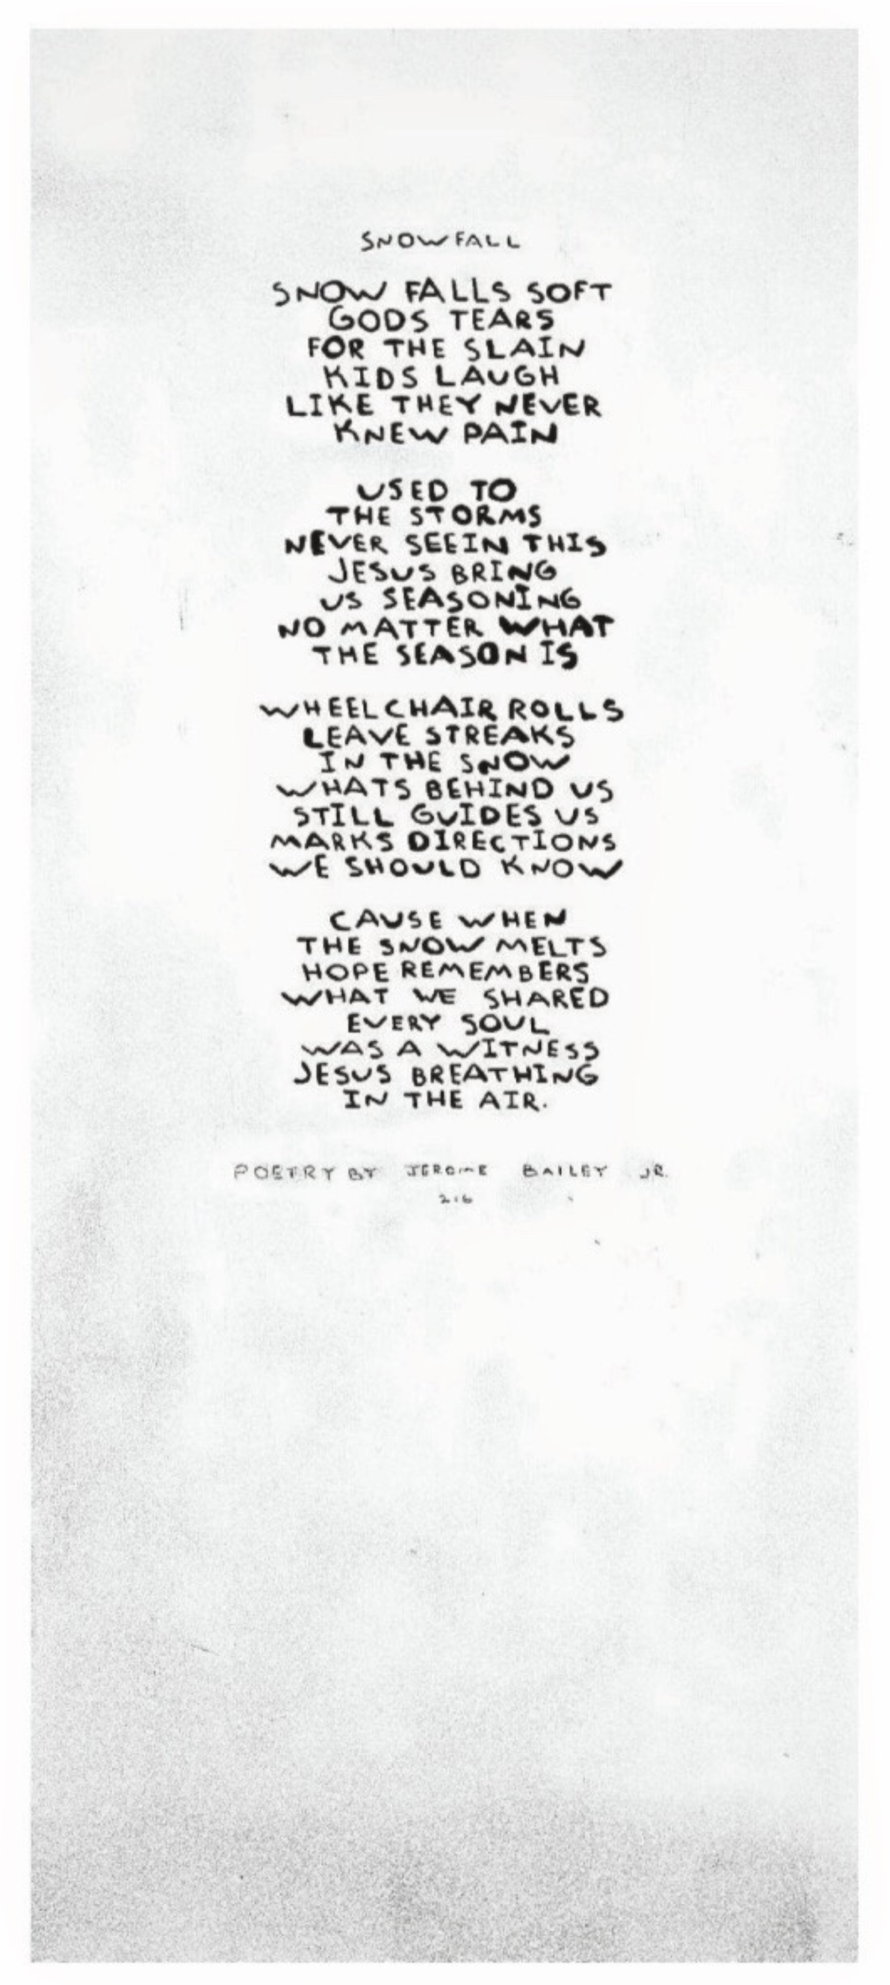 SNOWFALL
SNOW FALLS SOFT
GODS TEARS
FOR THE SLAIN
KIDS LAUGH
LIKE THEY NEVER
KNEW PAIN
USED TO
THE STORMS
NEVER SEEIN THIS
JESUS BRING
US SEASONING
NO MATTER WHAT
THE SEASON IS
WHEELCHAIR ROLLS
LEAVE STREAKS
IN THE SNOW
WHATS BEHIND US
STILL GUIDES US
MARKS DIRECTIONS
WE SHOULD KNOW
CAUSE WHEN
THE SNOW MELTS
HOPE REMEMBERS
WHAT WE SHARED
EVERY SOUL
WAS A WITNESS
JESUS BREATHING
IN THE AIR.
POETRY BY JEROME BAILEY JR.
216